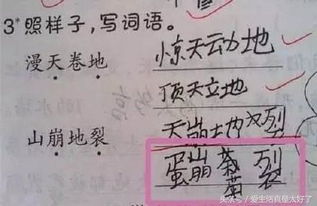 3*照样子，写词语。
漫天卷地 惊天动地
顶天立地
山崩地裂 天崩地裂
蛋崩菊裂
头条号 / 爱生活真是太好了